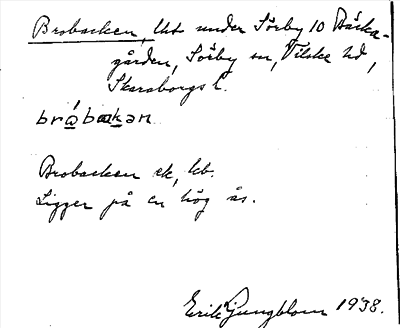 Brobacken, Ust under Sörby 10 Bäcka-
gården, Sörby sn, Vilske hd,
Skaraborgs l.
bråbakən
Brobacken ek, lcb.
Ligger på en hög ås.
Erik Ljungblom 1938.